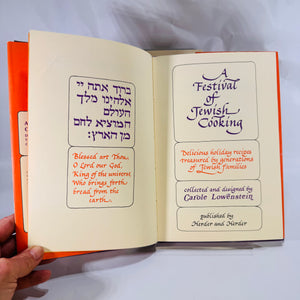 ברוך אתה יי
אלהינו מלך
העולם
המוציא לחם
מן הארץ:
Blessed art Thou,
O Lord our God,
King of the universe,
Who brings forth
bread from the
earth.
A
Festival
of
Jewish
Cooking
Delicious holiday recipes
treasured by generations
of Jewish families
collected and designed by
Carole Lowenstein
published by
Herder and Herder